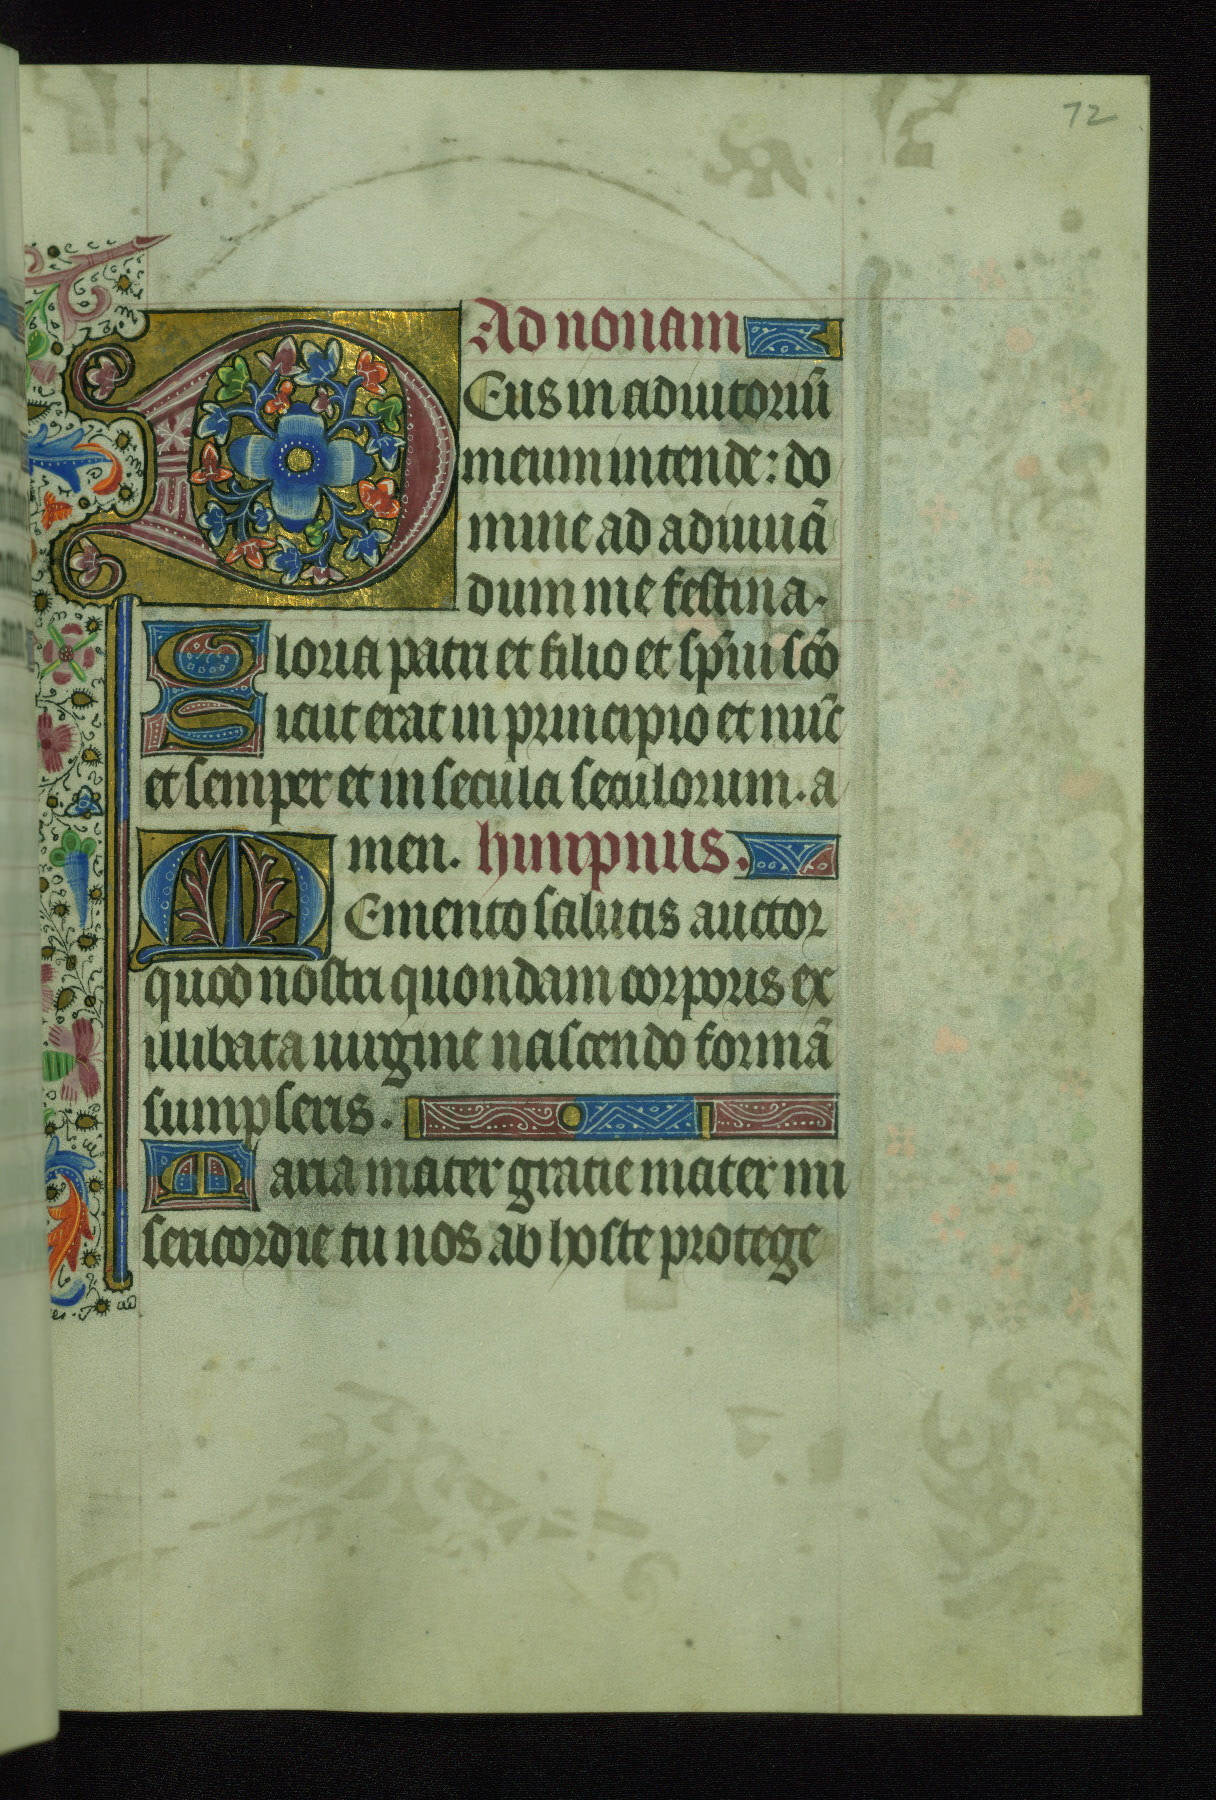 72
Ad nonam
DEus in adiutoriū
meum intende: do
mine ad adiuuā
dum me festina.
Gloria patri et filio et sp̄iui sc̄o
Sicut erat in principio et nūc
et semper et in secula seculorum. a
men. himpnus.
MEmento salutis auctor
quod nostri quondam corporis ex
illibata uirgine nascendo formā
sumpseris.
Maria mater gratie mater mi
sericordie tu nos ab hoste protege